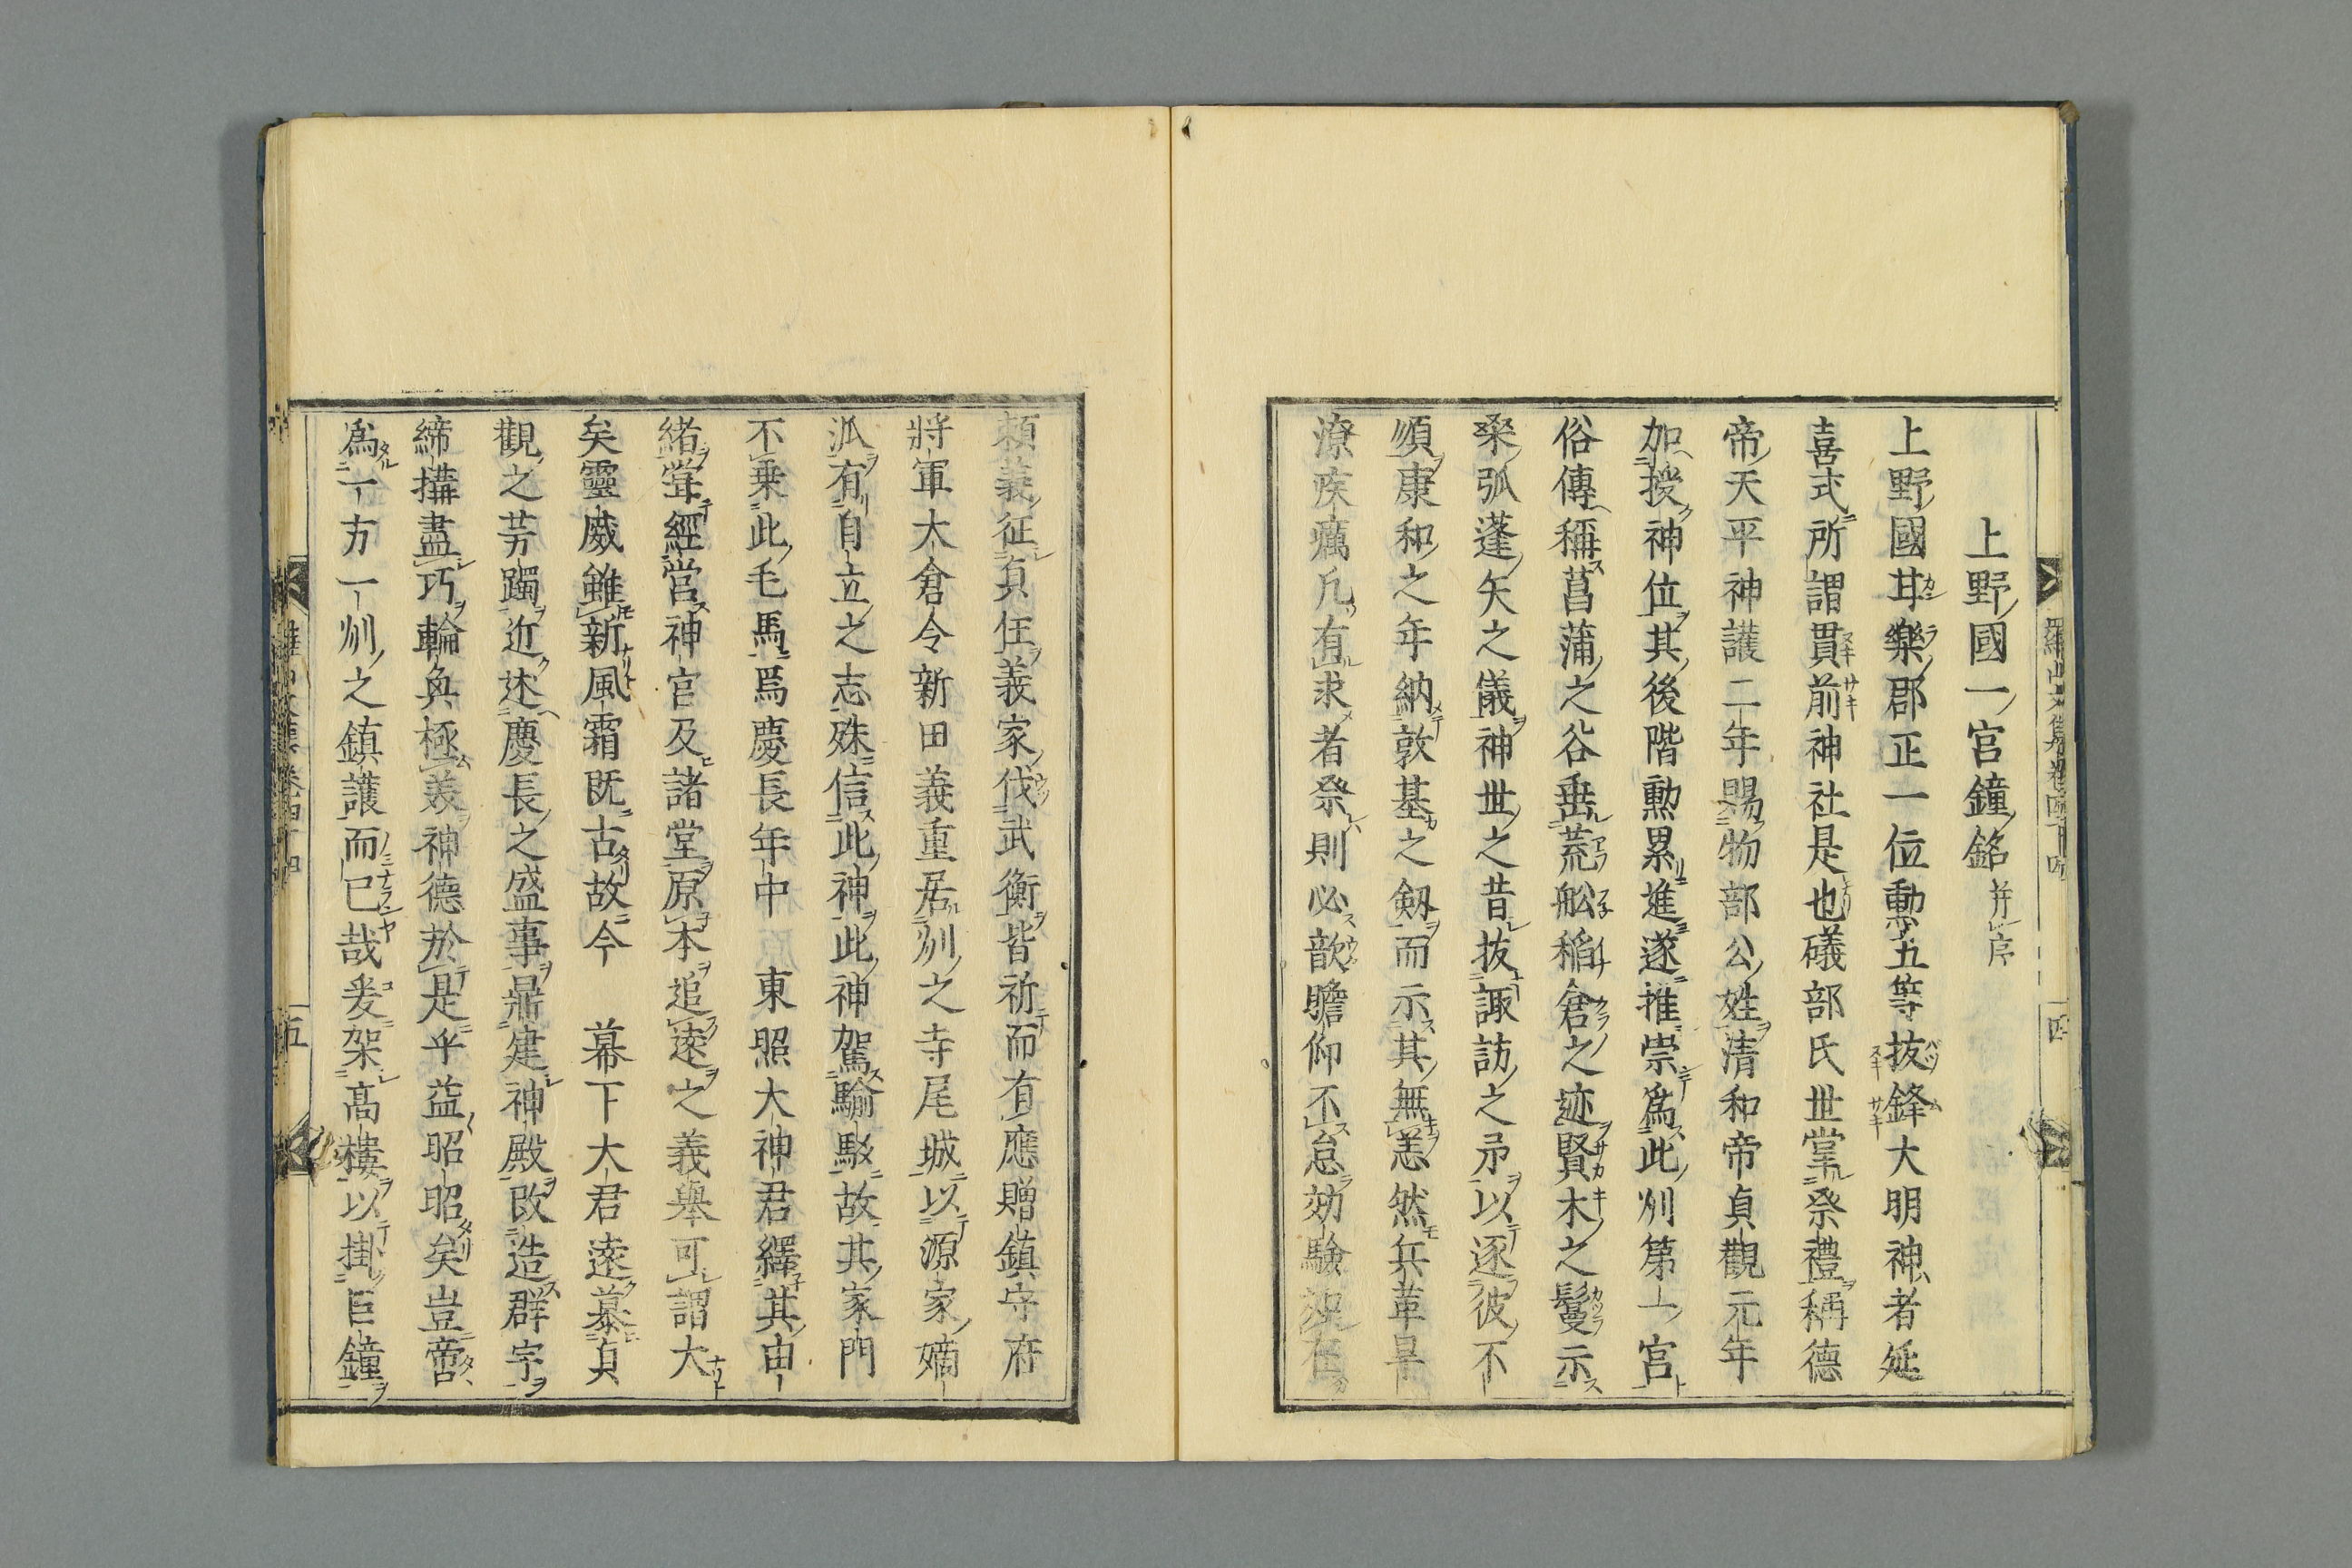 上野國一宮鐘銘并序
上野國甘樂郡正一位勳五等拔鋒大明神者延
喜式所謂貫前神社是也礒部氏世掌祭禮稱德
帝天平神護二年賜物部公姓清和帝貞觀元年
加授神位其後階勳累進遂推崇爲此州第一宮
俗傳稱菖蒲之谷垂荒舩稲倉之迹賢木之鬘示
桑弧蓬矢之儀神世之昔拔諏訪之矛以逐彼不
順康和之年納敦基之劔而示其無恙然兵革旱
潦疾癘凡有求者祭則必歆瞻仰不怠効驗
頼義征貞任義家伐武衡皆祈而有應贈鎮守府
將軍大倉令新田義重居州之寺尾城以源家嫡
泒有自立之志殊信此神此神駕騧駁故其家門
不乗此毛馬焉慶長年中　東照大神君繹其由
緒甞經営神官及諸堂原本追遠之義舉可謂大
矣靈威雖新風霜既古故今　幕下大君遠慕貞
觀之芳躅近述慶長之盛事鼎建神殿改造群宇
締搆盡巧輪奐極美神德於是乎益昭昭矣豈啻
爲一方一州之鎮護而已哉爰架髙樓以掛巨鐘
羅山文集卷四十四
四
五